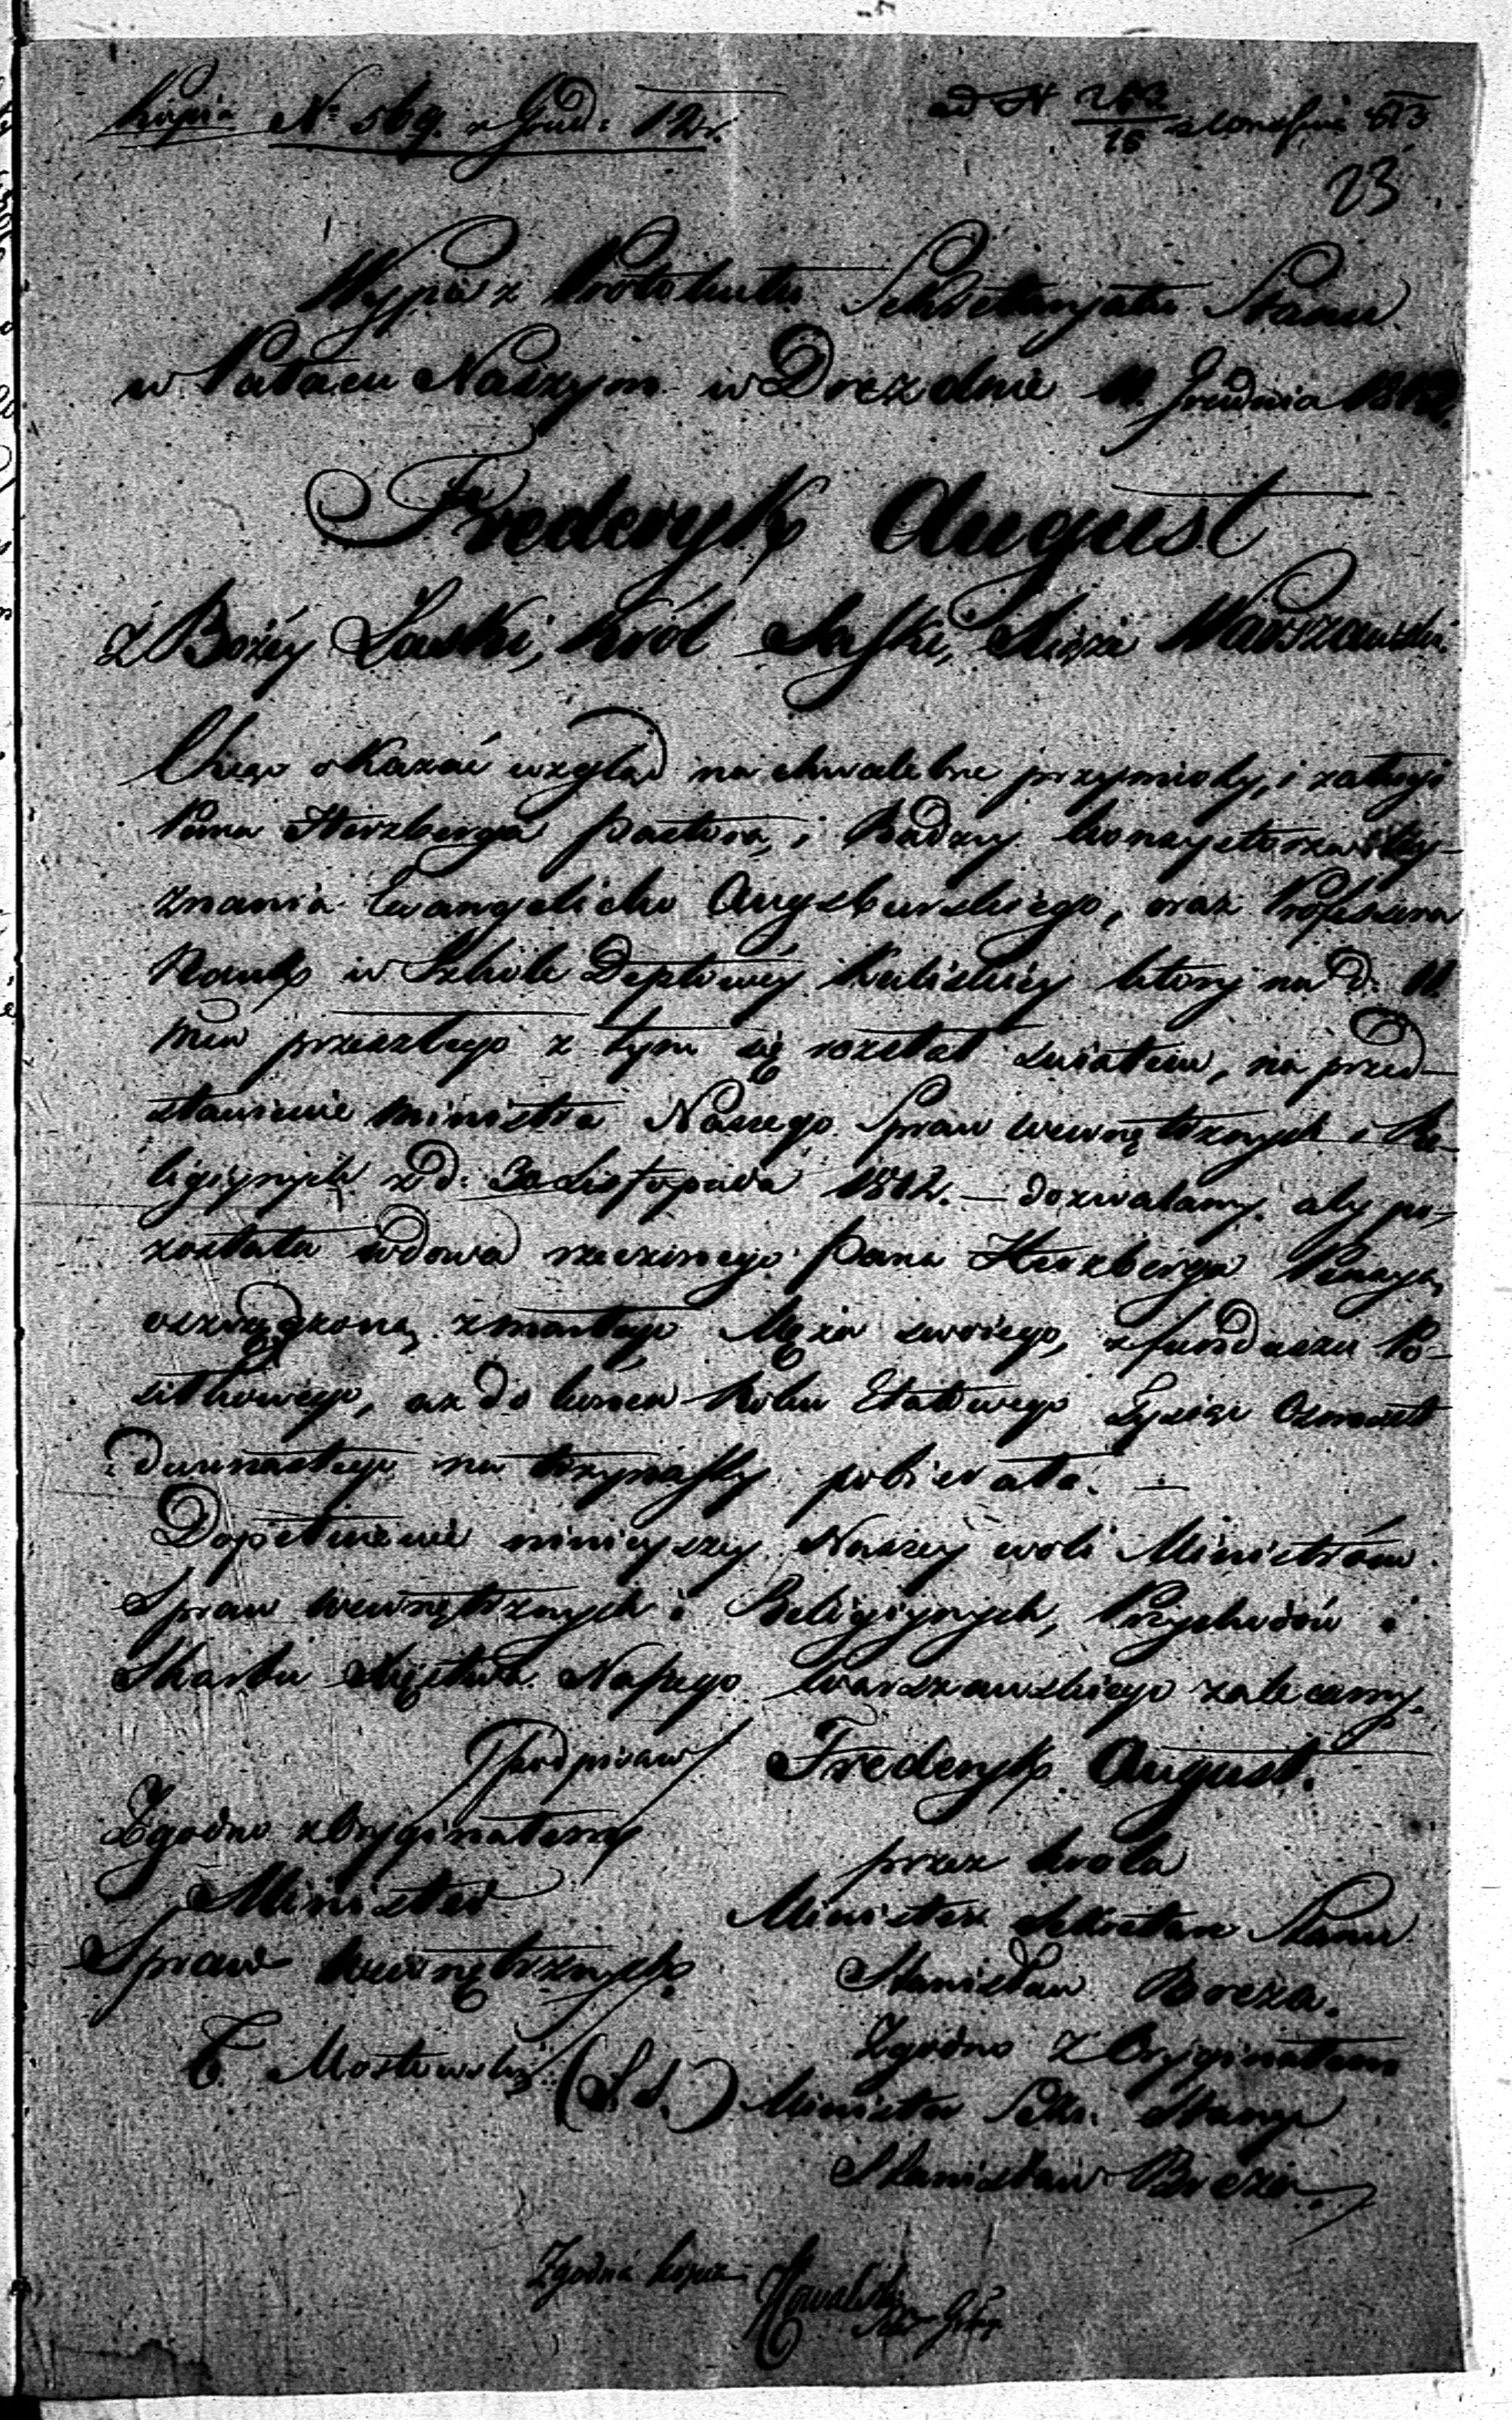 Kopia N: 569. z Grud: 12 r.
ad N 263/15 1813
23
Wypis z Protokułu Sekretaryatu Stanu
w Pałacu Naszym w Dreznie 11. Grudnia 1812.
Frederyk August
Z Bożéy Łaski, Król Saski, Xiąże Warszawski.
Chcąc okazać wzgląd na chwalebne przymioty, i zasługi
Pana Herzberga Pastora, i Radzcy Konsystorza Wy-
znania Ewangelicko Augsburskiego, oraz Professora
Nauk w Szkole Deptowéy Kaliskiéy który na d. 11.
mca przeszłego z tym się rozstał światem, na przed-
stawienie Ministra Naszego Spraw Wewnętrznych i Re-
ligijnych z d: 30 Listopada 1812. — dozwalamy, aby po-
została wdowa rzeczonego Pana Herzberga Pensyą,
oszczędzoną zmarłego Męża swoiego, z funduszu Po-
siłkowego, aż do końca Roku Etatowego Tysiąc Osmset
dwunastego na trzynasty pobierała. —
Dopełnienie ninieyszey Naszey woli Ministróm
Spraw Wewnętrznych i Religijnych, Przychodów i
Skarbu Xięstwa Naszego Warszawskiego zalecamy.
/podpisano/ Frederyk August.
Zgodno z Oryginałem
przez Króla
Minister
Minister Sekretarz Stanu
Spraw Wewnętrznych
Stanisław Breza.
Zgodno z Oryginałem
T. Mostowski (L.S.) Minister Sekr. Stanu
Stanisław Breza.
Zgodna kopia
Kowalski